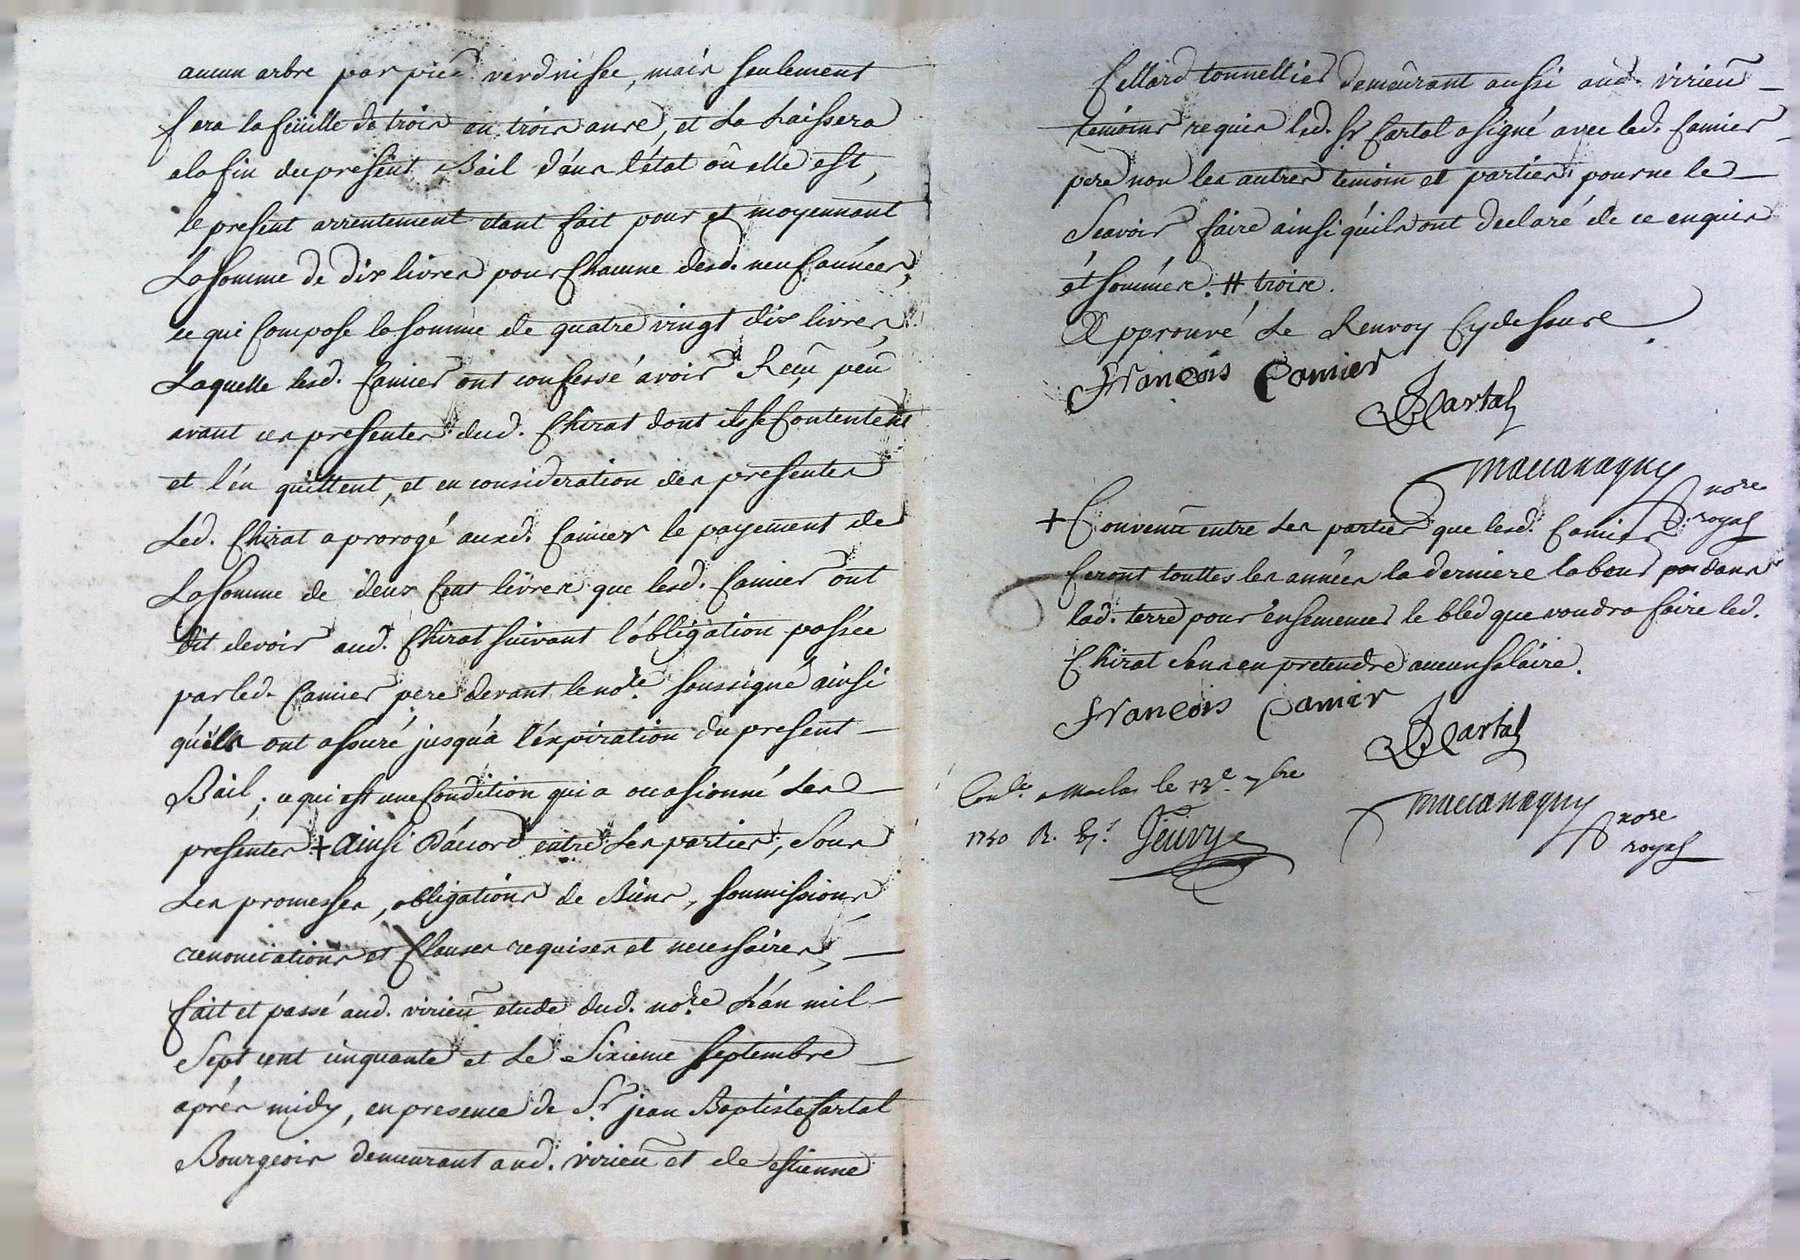 aucun arbre par pied verd ni sec, mais seulement
fera la feüille de trois en trois ans, et La Laissera
a la fin du present Bail dans l'état où elle est,
le present arrentement etant fait pour et moyennant
La somme de dix livres pour Chacune desd. neuf années,
ce qui Compose la somme de quatre vingt dix livres,
Laquelle lesd. Camier ont confessé avoir Reçu peu
avant ces presentes dud. Chirat dont ils se Contentent
et l'en quittent, et en consideration des presentes
Led. Chirat a prorogé auxd. Camier le payement de
La somme de deux Cent livres que lesd. Camier ont
dit devoir aud. Chirat suivant l'obligation passée
par led. Camier pere devant le nore. soussigné ainsi
qu'ils ont assuré jusqu'a l'expiration du present
Bail; ce qui est une Condition qui a occasionné Les
presentes + Ainsi D'accord entre Les parties, Sous
Les promesses, obligations de Biens, soumissions,
renonciations et Clauses requises et necessaires,
fait et passé aud. virieu etude dud. nore. L'an mil
Sept cent cinquante et Le Sixieme Septembre
après midy, en presence de Sr. jean Baptiste Cartal
Bourgeois demeurant aud. virieu et de estienne
tonnellier demeurant aussi aud. virieu
temoins requis led. Sr. Cartal a signé avec led. Camier
pere non les autres temoin et parties pour ne le
Scavoir faire ainsi qu'ils ont declaré de ce enquis
et sommés. # trois.
Approuvé Le Renvoy Cy dessus
François Camier
Cartal
nore
royal
+ Convenu entre Les parties que lesd. Camier
feront touttes les années la derniere labour dans
lad. terre pour ensemencer le bled que voudra faire led.
Chirat sans en pretendre aucun salaire.
François Camier
Cartal
Conlé a Maclas le 13e 7bre
1750 R.
nore
royal